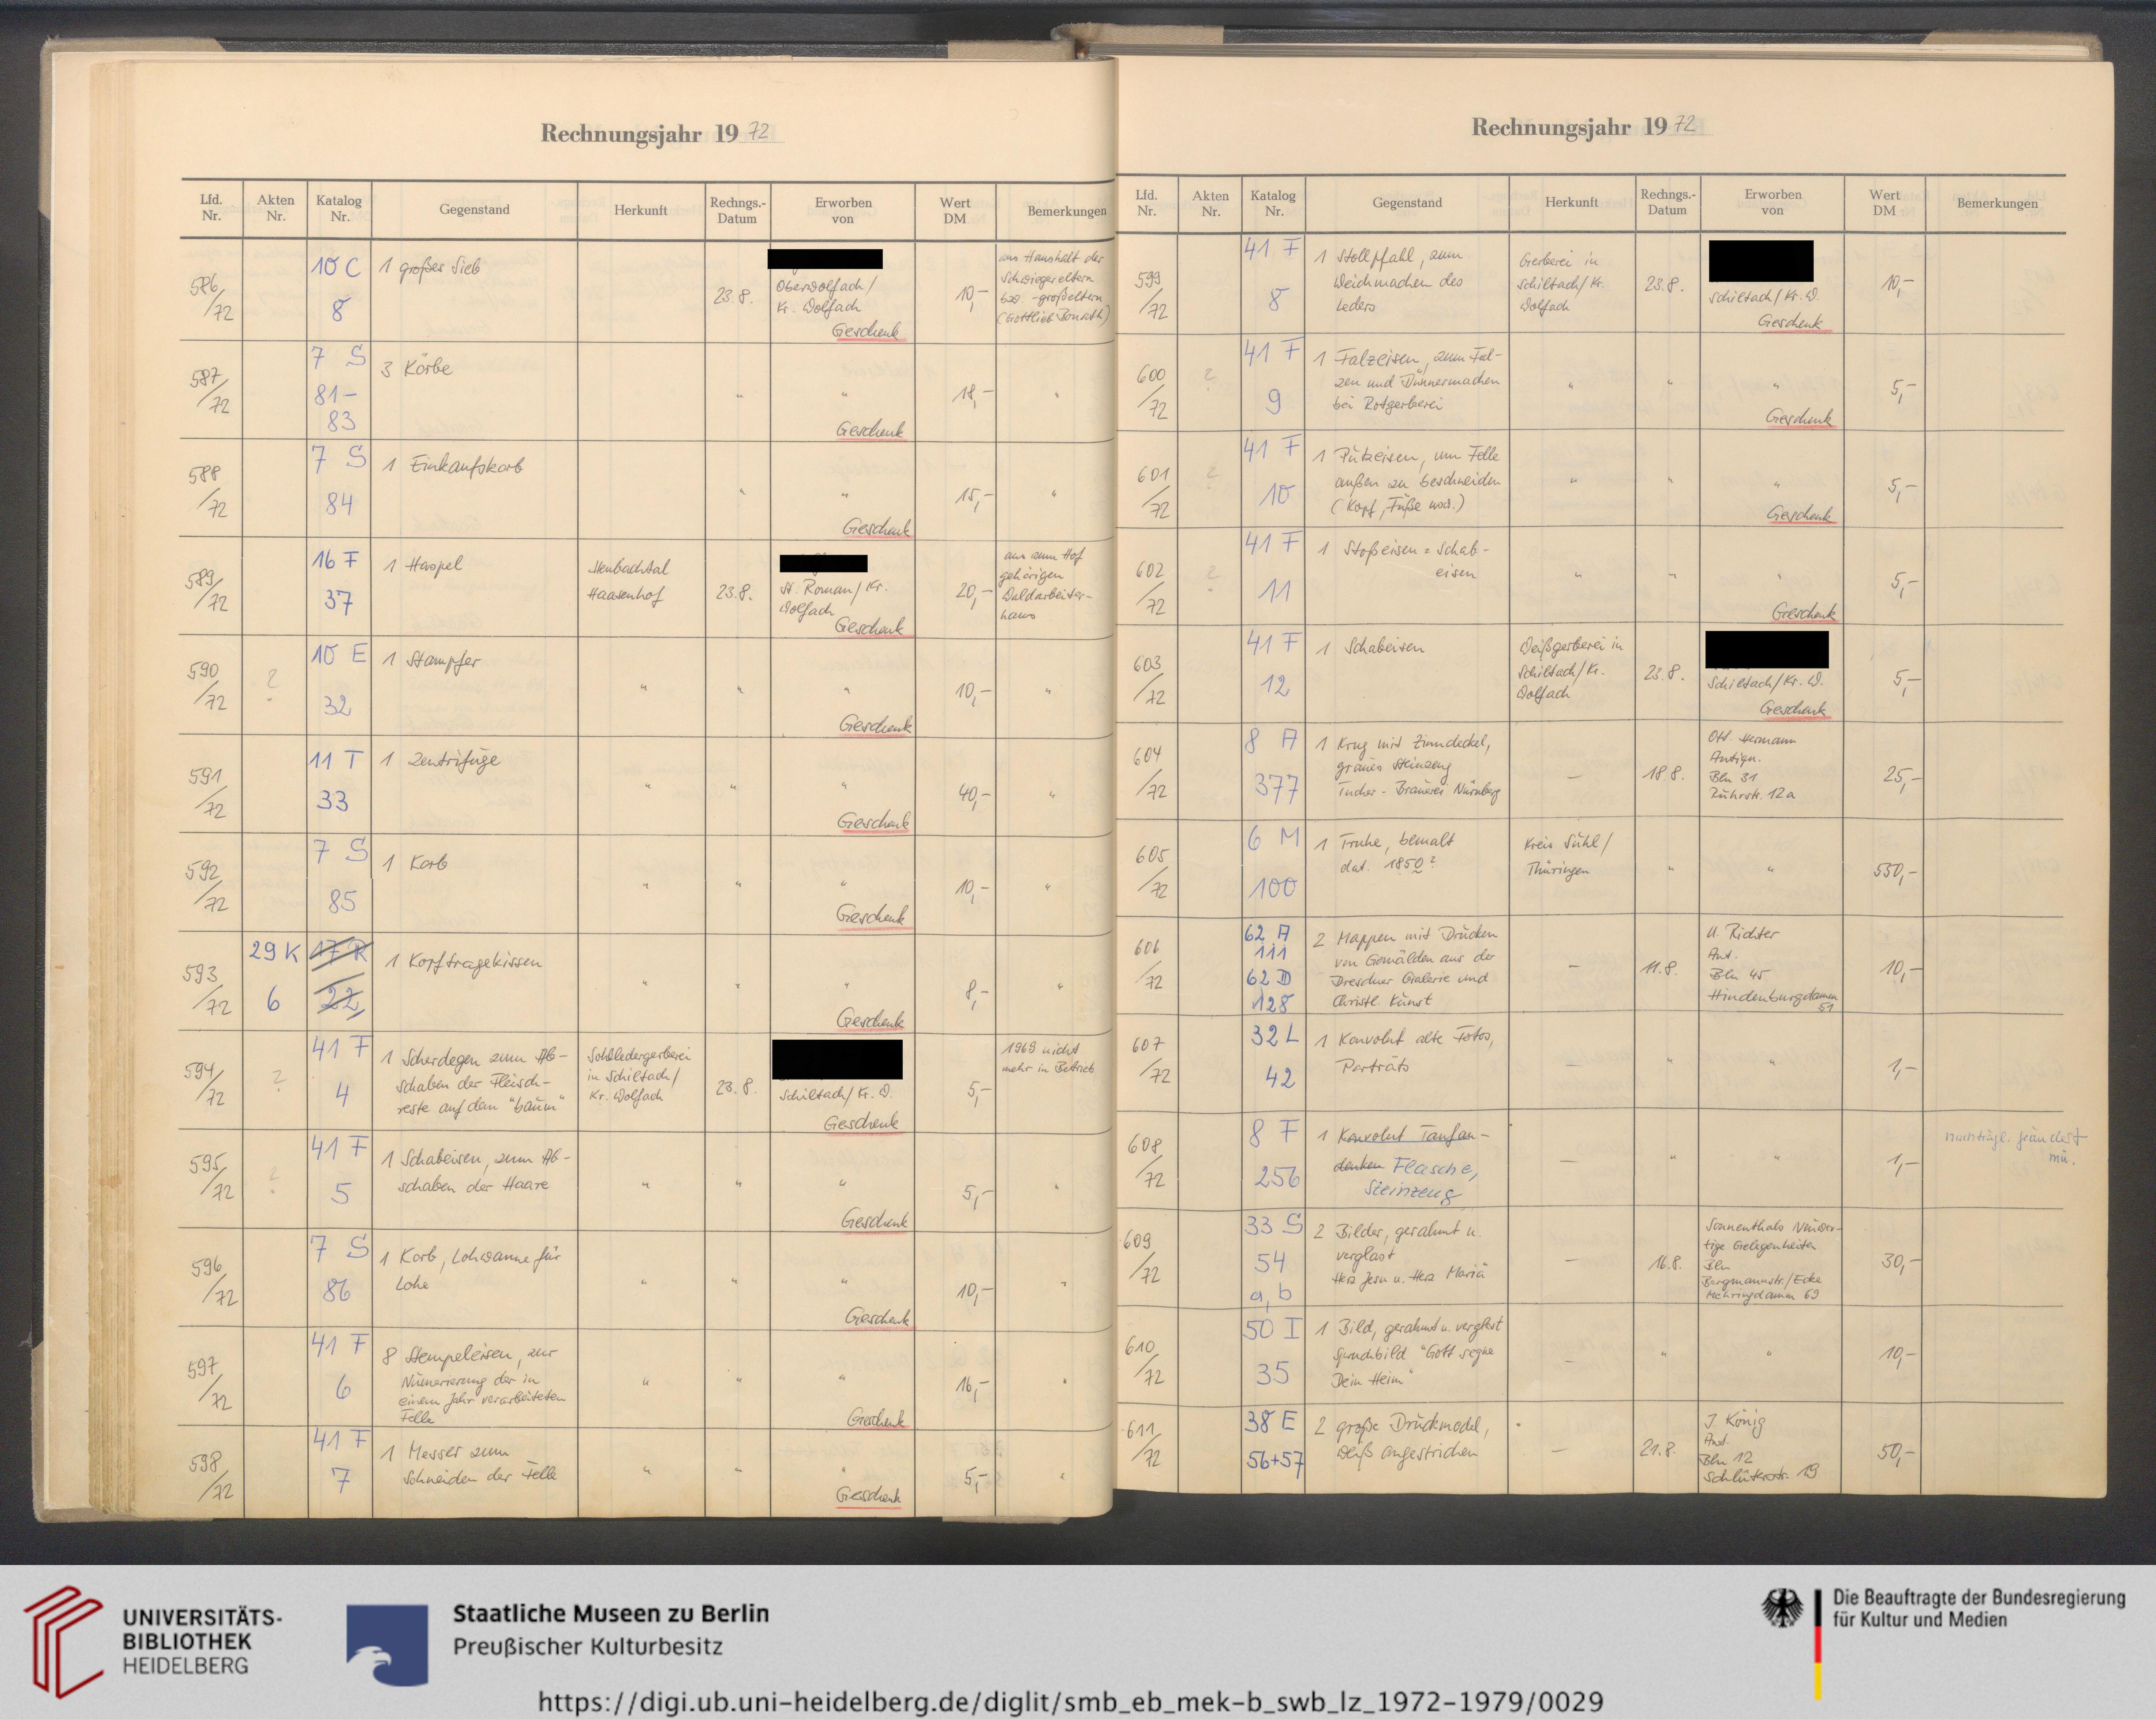 Rechnungsjahr 1972
Lfd. Nr.
Akten Nr.
Katalog Nr.
Gegenstand
Herkunft
Rechngs.-Datum
Erworben von
Wert DM
Bemerkungen
586/72
10 C
8
1 großes Sieb
23.8.
Oberwolfach/
Kr. Wolfach
Geschenk
10,-
aus Haushalt der
Schwiegereltern
bzw -großeltern
587/72
7 S
81-
83
3 Körbe
"
"
Geschenk
18,-
"
588/72
7 S
84
1 Einkaufskorb
"
"
Geschenk
15,-
"
589/72
16 F
37
1 Haspel
Heubachtal
Haasenhof
23.8.
St. Roman/Kr.
Wolfach
Geschenk
20,-
aus zum Hof
gehörigen
Waldarbeiter-
haus
590/72
?
10 E
32
1 Stampfer
"
"
"
Geschenk
10,-
"
591/72
11 T
33
1 Zentrifuge
"
"
"
Geschenk
40,-
"
592/72
7 S
85
1 Korb
"
"
"
Geschenk
10,-
"
593/72
29 K
6
17 R
22
1 Kopftragekissen
"
"
"
Geschenk
8,-
"
594/72
?
41 F
4
1 Scherdegen zum Ab-
schaben der Fleisch-
reste auf dem "baum"
Sohlledergerberei
in Schiltach/
Kr. Wolfach
23.8.
Schiltach/Kr. W.
Geschenk
5,-
1969 nicht
mehr in Betrieb
595/72
?
41 F
5
1 Schabeisen, zum Ab-
schaben der Haare
"
"
"
Geschenk
5,-
"
596/72
7 S
86
1 Korb, Lohwanne für
Lohe
"
"
"
Geschenk
10,-
"
597/72
41 F
6
8 Stempeleisen, zur
Numerierung der in
einem Jahr verarbeiteten
Felle
"
"
"
Geschenk
16,-
"
598/72
41 F
7
1 Messer zum
Schneiden der Felle
"
"
"
Geschenk
5,-
"
Rechnungsjahr 1972
Lfd. Nr.
Akten Nr.
Katalog Nr.
Gegenstand
Herkunft
Rechngs.-Datum
Erworben von
Wert DM
Bemerkungen
599/72
41 F
8
1 Stollpfahl, zum
Weichmachen des
Leders
Gerberei in
Schiltach/Kr.
Wolfach
23.8.
Schiltach/Kr. W.
Geschenk
10,-
600/72
?
41 F
9
1 Falzeisen, zum Fal-
zen und Dünnermachen
bei Rotgerberei
"
"
"
Geschenk
5,-
601/72
?
41 F
10
1 Putzeisen, um Felle
außen zu beschneiden
(Kopf, Füße usw.)
"
"
"
Geschenk
5,-
602/72
?
41 F
11
1 Stoßeisen = Schab-
eisen
"
"
"
Geschenk
5,-
603/72
41 F
12
1 Schabeisen
Weißgerberei in
Schiltach/Kr.
Wolfach
23.8.
Schiltach/Kr. W.
Geschenk
5,-
604/72
8 A
377
1 Krug mit Zinndeckel,
graues Steinzeug
Tucher-Brauerei Nürnberg
—
18.8.
Ott. Hermann
Antiqu.
Bln 31
12a
25,-
605/72
6 M
100
1 Truhe, bemalt
dat. 1850?
Kreis Suhl/
Thüringen
"
"
550,-
606/72
62 A
111
62 D
128
2 Mappen mit Drucken
von Gemälden aus der
Dresdner Galerie und
Christl. Kunst
—
11.8.
U. Richter
Ant.
Bln 45
Hindenburgdamm
51
10,-
607/72
32 L
42
1 Konvolut alte Fotos,
Porträts
—
"
"
1,-
608/72
8 F
256
1 Konvolut Taufan-
denken Flasche,
Steinzeug
—
"
"
1,-
nachträgl. geändert
mü.
609/72
33 S
54
a, b
2 Bilder, gerahmt u.
verglast
Herz Jesu u. Herz Mariä
—
16.8.
Sonnenthals Neuwer-
tige Gelegenheiten
Bln
Bergmannstr./Ecke
Mehringdamm 69
30,-
610/72
50 I
35
1 Bild, gerahmt u. verglast
Spruchbild "Gott segne
Dein Heim"
—
"
"
10,-
611/72
38 E
56+57
2 große Druckmodel,
weiß angestrichen
—
21.8.
J. König
Ant.
Bln 12
Schlüterstr. 19
50,-
UNIVERSITÄTS-
BIBLIOTHEK
HEIDELBERG
Staatliche Museen zu Berlin
Preußischer Kulturbesitz
Die Beauftragte der Bundesregierung
für Kultur und Medien
https://digi.ub.uni-heidelberg.de/diglit/smb_eb_mek-b_swb_lz_1972-1979/0029